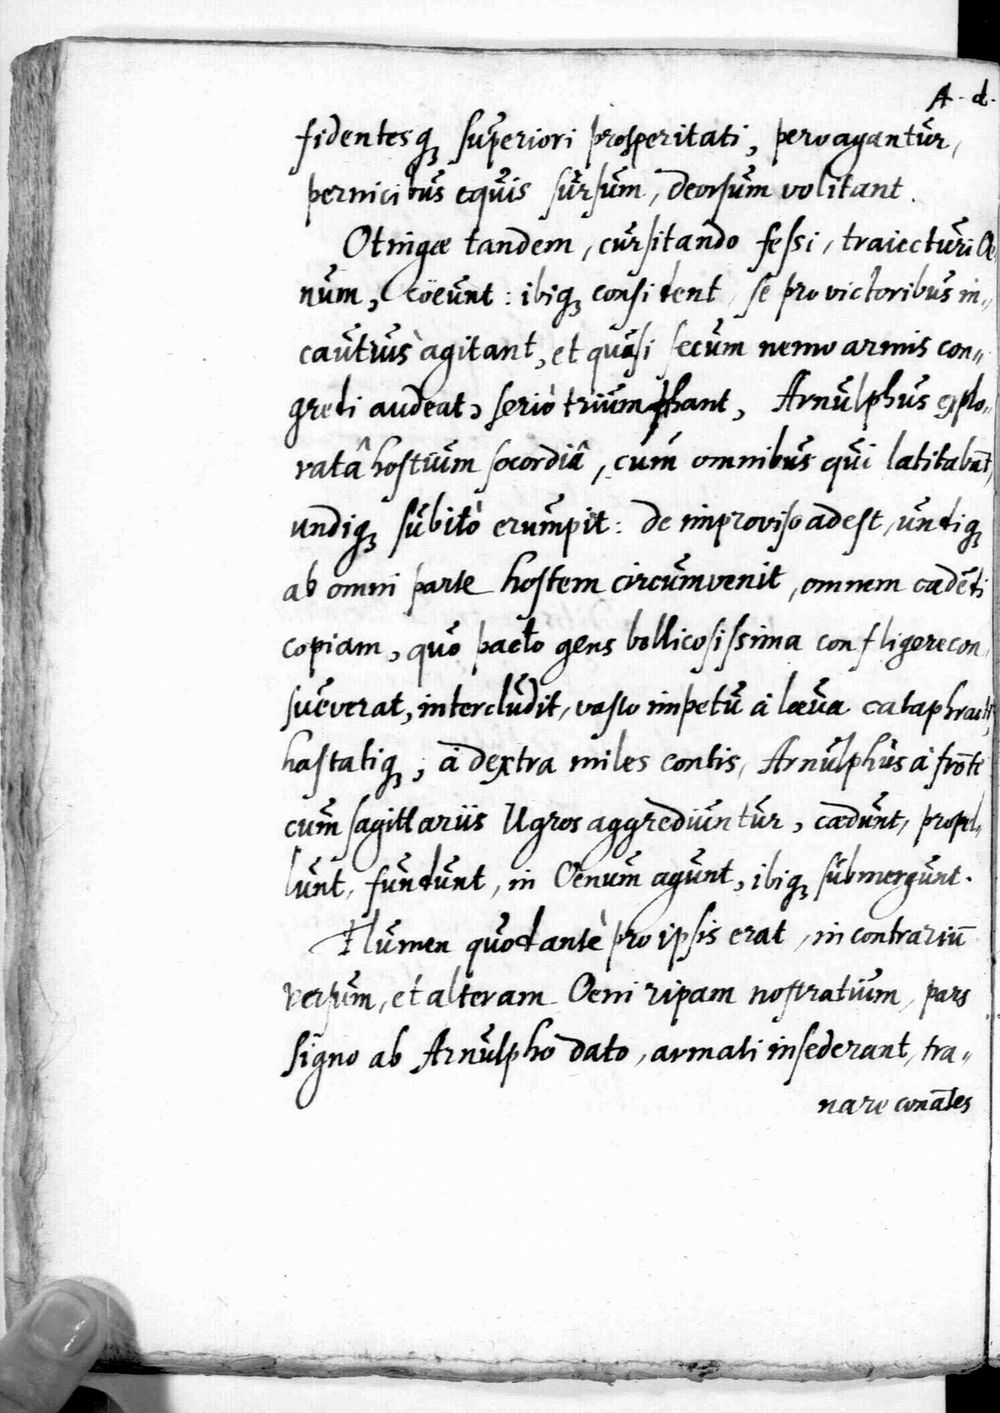 A. d.
fidentesq; superiori prosperitati, pervagantur,
pernicibus equis sursum, deorsum volitant.
Otingæ tandem, cursitando fessi, traiecturi Oe
num, coëunt: ibiq; consident, se pro victoribus in„
cautius agitant, et quasi secum nemo armis con„
gredi audeat, serio triumphant, Arnulphus explo„
ratâ hostium socordiâ, cum omnibus qui latitabāt,
undiq; subitò erumpit: de improviso adest, undiq;
ab omni parte hostem circumvenit, omnem cadēdi
copiam, quo pacto gens bellicosissima confligere con„
sueverat, intercludit, vasto impetu à læva cataphracti,
hastatiq;, à dextra miles contis, Arnulphus à frōte
cum sagittariis Ugros aggrediuntur, cædunt, propel„
lunt, fundunt, in Oenum agunt, ibiq; submergunt.
Flumen quod antè pro ipsis erat, in contrariū
versum, et alteram Oeni ripam nostratium, pars
signo ab Arnulpho dato, armati insederant, tra„
nare conātes